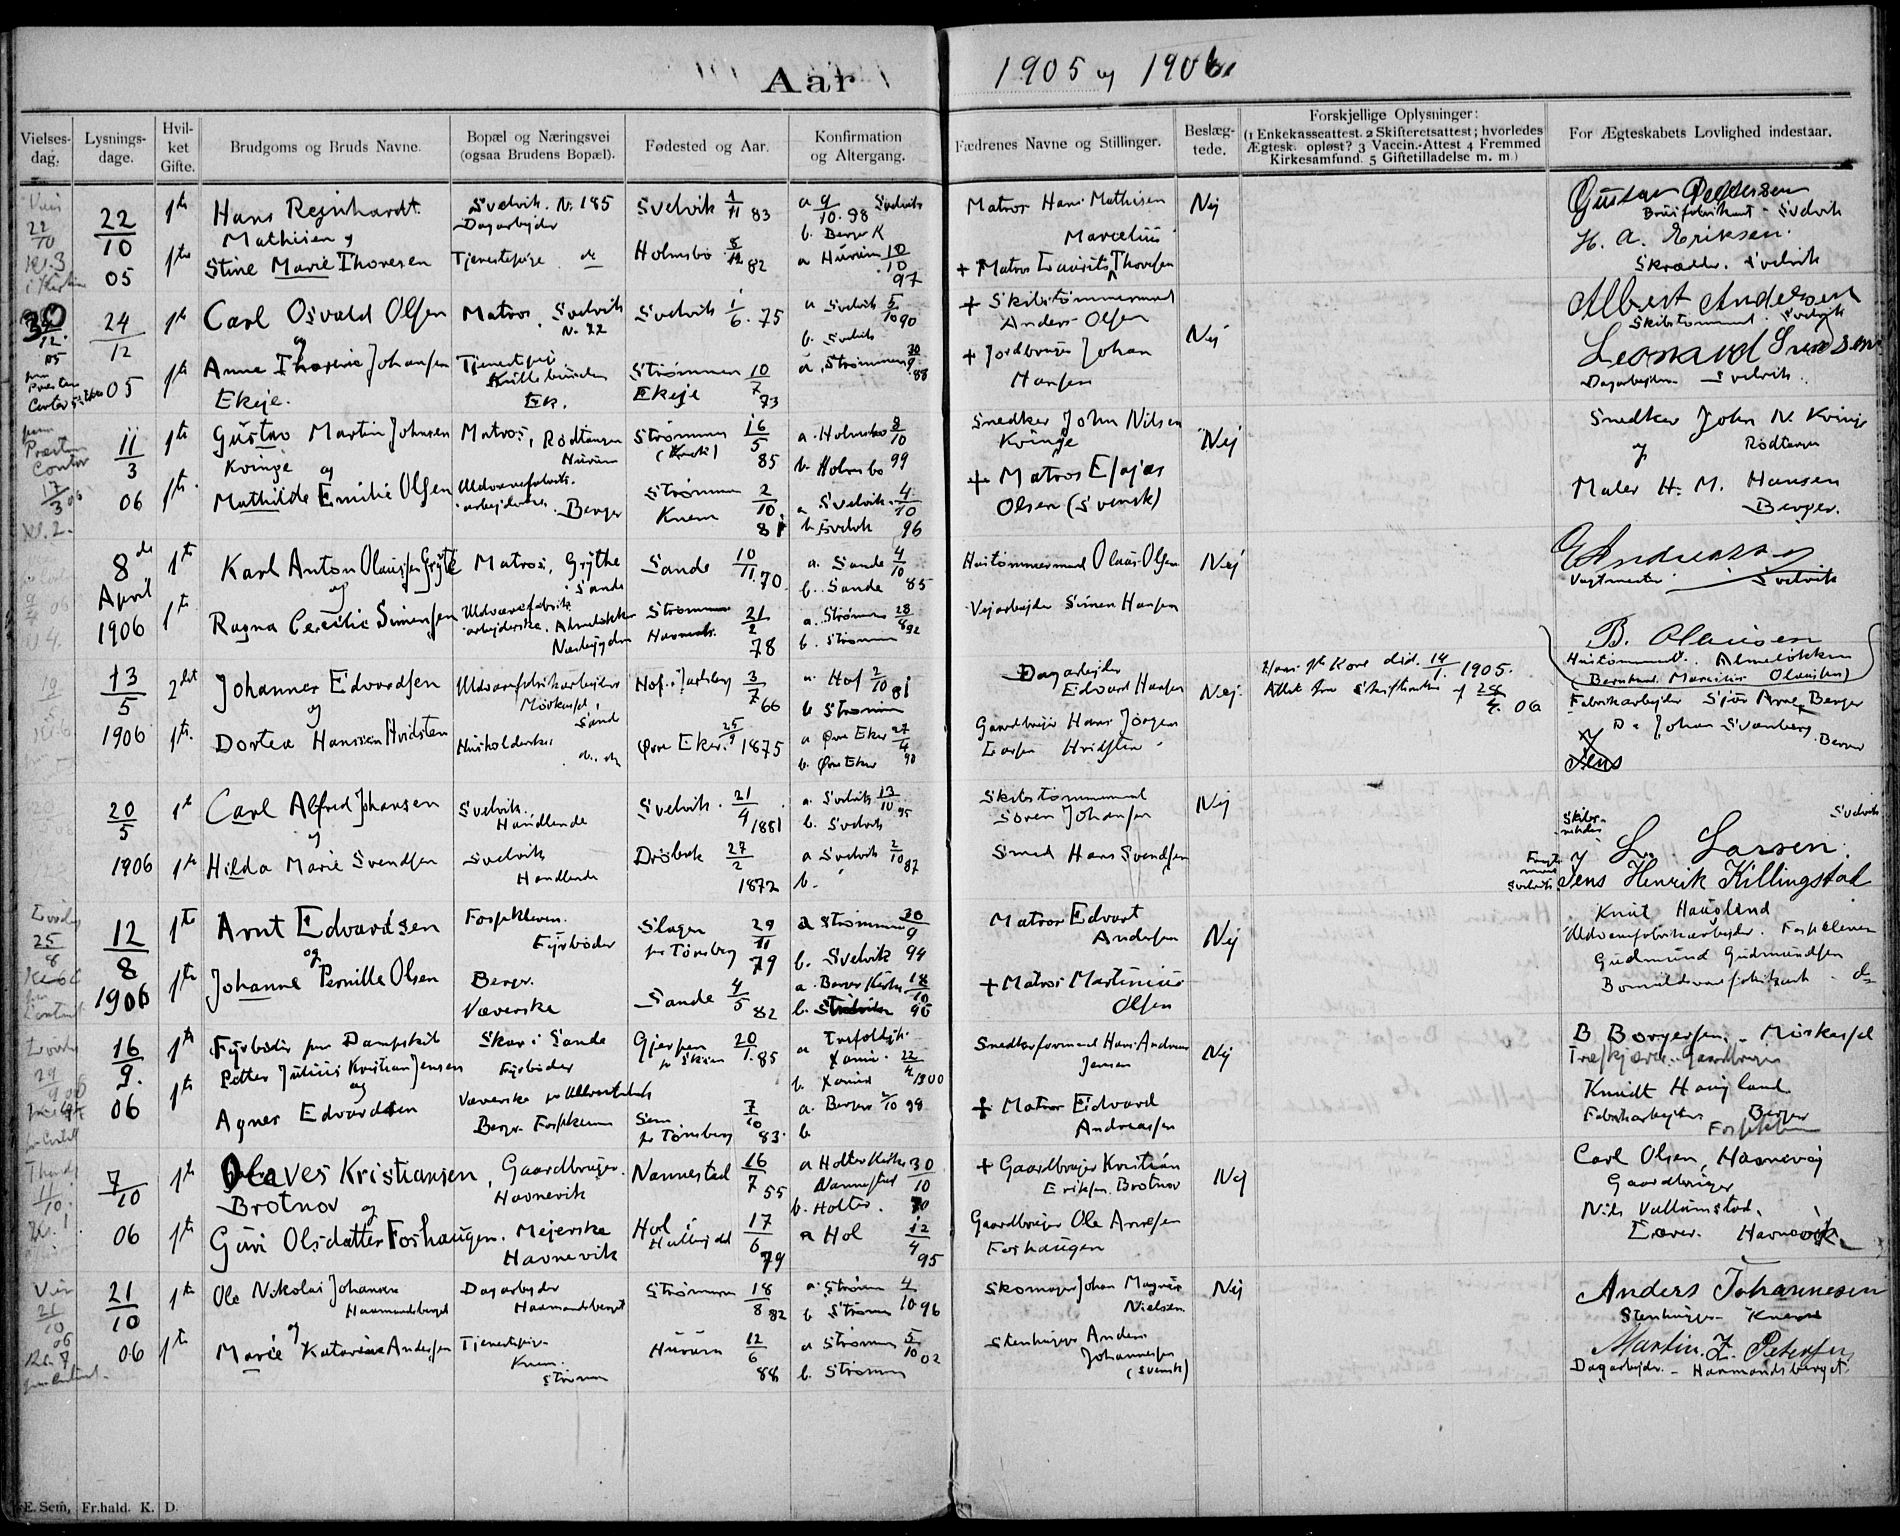 Aar 1905 og 1906
Vielsesdag.
Lysningsdage.
Hvilket Gifte.
Brudgoms og Bruds Navne.
Bopæl og Næringsvei (ogsaa Brudens Bopæl).
Fødested og Aar.
Konfirmation og Altergang.
Fædrenes Navne og Stillinger.
Beslægtede.
Forskjellige Oplysninger:
(1 Enkekasseattest. 2 Skifteretsattest; hvorledes
Ægtesk. opløst? 3 Vaccin.-Attest 4 Fremmed
Kirkesamfund. 5 Giftetilladelse m. m.)
For Ægteskabets Lovlighed indestaar.
22/10 Kl. 3
22/10 05
1ste Hans Rejnhardt Mathisen og
Svelvik. N. 185 Dagarbejder
Svelvik 1/11 83
a 9/10 98 Svelvik
b. Berger K
Matros Hans Mathisen Marcelius
Nej
Gustav Pettersen
Brusfabrikant - Svelvik
1ste Stine Marie Thoresen
Tjenestepige do
Holmsbo 82
a Hurum 10/10 97
+ Matros Laurits Thoresen
H. A. Eriksen.
Skrædder. Svelvik
30/12 05
24/12 05
1ste Carl Osvald Olsen og
Matros, Svelvik N. 22
Svelvik 1/6 75
a Svelvik 5/10 90
b. Svelvik
+ Skibstømmermand Anders Olsen
Nej
Albert Andersen
Skibstømmerm. Svelvik
1ste Anne Thorine Johansen Ekeje.
Tjenestepige Ek.
Strømmen Ekeje 10/7 73
a. Strømmen 30/9 88
+ Jordbruger Johan Hansen
Leonard Svendsen
Dagarbejder Svelvik.
17/3 06 Kl. 2.
11/3 06
1ste Gustav Martin Johnsen Kvinge og
Matros, Rødtangen Hurum
Strømmen 16/5 85
a. Holmsbo 8/10 99
b. Holmsbo
Snedker John Nilsen Kvinge
Nej
Snedker John N. Kvinge
og Rødtangen
1ste Mathilde Emilie Olsen
Uldvarefabrikarbejderske. Berger
Strømmen Knem 2/10. 81
a Svelvik. 4/10 96
b. Svelvik
+ Matros Esajas Olsen (Svensk)
Maler H. M. Hansen
Berger.
8de April 1906
1ste Karl Anton Olaussen Grytte og
Matros, Grythe Sande
Sande 10/11. 70
a. Sande 4/10 85
b. Sande
Hustømmermand Olaus Olsen
Nej
Andreassen
Vagtmester Svelvik
1ste Ragna Cecilie Simensen
Uldvarefabrik arbejderske. Almeløkken Nesbygden
Strømmen 21/2 78
a. Strømmen 28/8 92
b. Strømmen
Vejarbejder Simen Hansen
B. Olausen
Hustømmerm. Almeløkken
(Bernhard Marcilius Olausen)
13/5 1906
2det Johannes Edvardsen og
Uldvarefabrikarbejder Sande
Hof i Jarlsberg 3/7 66
a. Hof 2/10 81
b Strømm
Dagarbejder Edvard Hansen
Nej.
Hans 1ste Kone død. 14/1. 1905.
Attest fra Skifteretten af 28/4. 06
Fabrikarbejder Sjur Berger
Do Johan Svanberg Berger
og
Jens
1ste. Dortea Hanssen Hvidsten
Husholderske do. do
Øvre Eker. 25/9 1875
a Øvre Eker 27/4 90
b. Øvre Eker
Gaardbruger Hans Jörgen Larsen Hvidsten
20/5 1906
1ste Carl Alfred Johansen og
Svelvik. Handlende
Svelvik. 21/4 1881
a. Svelvik 13/10 95
b. Svelvik
Skibstømmermand Sören Johansen
Nej
Svelvik
og L. Larsen.
1ste Hilda Marie Svendsen
Svelvik Handlende
Drøbak 27/2 1872
a Svelvik 2/10 87
b.
Smed Hans Svendsen
Jens Henrik Killingstad
25/8
12/8 1906
1ste Arnt Edvardsen og
Fossekleven. Fyrbøder
Slagen pr Tønsberg 29/11 79
a Strømmen 30/9 94
b. Svelvik
Matros Edvart Andersen
Nej
Knut Haugland
Uldvarefabrikarbejder. Fossekleven
1ste Johanne Pernille Olsen
Berger. Væverske
Sande 4/5 82
a. Berger Kirke 18/10 96
b.
+ Matros Martinius Olsen
Gudmund Gudmundsen
Bomuldsvarefabrikant - do
29/9
16/9. 06
1ste Fyrbøder paa Dampskib Petter Julius Kristian Jensen og
Skar i Sande Fyrbøder
Gjerpen pr Skien 20/1. 85
a Trefoldigh. Xania. 22/4 1900
b. Xania
Snedkerformand Hans Andreas Jensen
Nej
B Borgersen - Mörkasel
Gaardbruger
1ste Agnes Edvardsen
Væverske Berger Fossekleven
Sem pr Tønsberg 7/10 83.
a. Berger /10 98
b.
+ Matros Edvard Andreassen
Knudt Haugland
Fabrikarbejder Berger
Fossekleven
11/10. Kl. 1
7/10 06
1ste Olaves Kristiansen, Brotnov og
Gaardbruger. Havnevik
Nannestad 16/7 55
a Holter Kirke Nannestad 30/10 70
b. Holter.
+ Gaardbruger Kristian Eriksen Brotnov
Nej
Carl Olsen, Havnevig
Gaardbruger
1ste Guri Olsdatter Foshaugen.
Mejerske Havnevik
Hol i Hallingdal 17/6 79
a Hol 12/4 95
Gaardbruger Ole Arnesen Foshaugen
Nils Vallumstad.
Lærer. Havnevik
21/10 06 Kl. 7
21/10 06
1ste Ole Nikolai Johansen Haamandsberget og
Dagarbejder Haamandsberget
Strømmen 18/8 82
a. Strømm 4/10 96
b Strømm
Skomager Johan Magnus Nielsen
Nej
Anders Johannesen
Stenhugger Knem
1ste Marie Katarina Andersen
Tjenestepige Knem. Strømm
Hurum 12/6 88
a Strømm 5/10 02
b. Strømm
Stenhugger Anders Johannesen (Svensk)
Martin. Z. Petersen
Dagarbejder. - Haamandsberget.
E. Sem, Fr.hald. K. D.